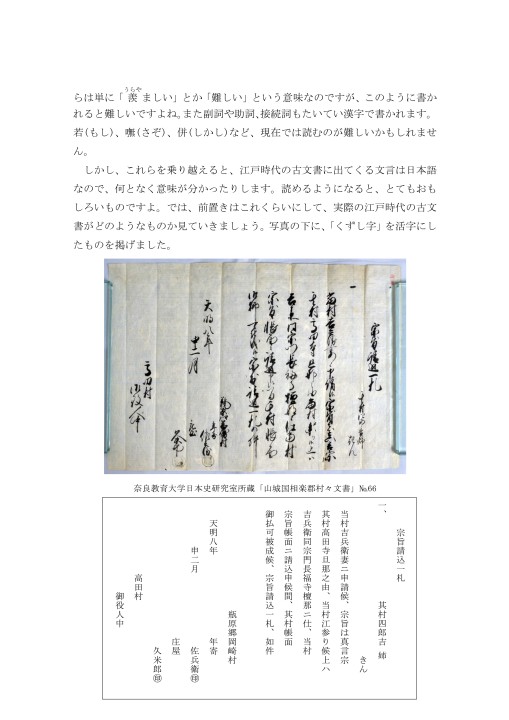 らは単に「羨ましい」とか「難しい」という意味なのですが、このように書か
れると難しいですよね。また副詞や助詞、接続詞もたいてい漢字で書かれます。
若(もし)、嘸(さぞ)、併(しかし)など、現在では読むのが難しいかもしれませ
ん。
しかし、これらを乗り越えると、江戸時代の古文書に出てくる文言は日本語
なので、何となく意味が分かったりします。読めるようになると、とてもおも
しろいものですよ。では、前置きはこれくらいにして、実際の江戸時代の古文
書がどのようなものか見ていきましょう。写真の下に、「くずし字」を活字にし
たものを掲げました。
奈良教育大学日本史研究室所蔵「山城国相楽郡村々文書」№66
宗旨請込一札
一、 其村四郎吉 姉
きん
当村吉兵衛妻ニ申請候、宗旨は真言宗
其村高田寺旦那之由、当村江参り候上ハ
吉兵衛同宗門長福寺檀那ニ仕、当村
宗旨帳面ニ請込申候間、其村帳面
御払可被成候、宗旨請込一札、如件
瓶原郷岡崎村
天明八年 年寄
申二月 佐兵衛㊞
庄屋
久米郎㊞
高田村
御役人中